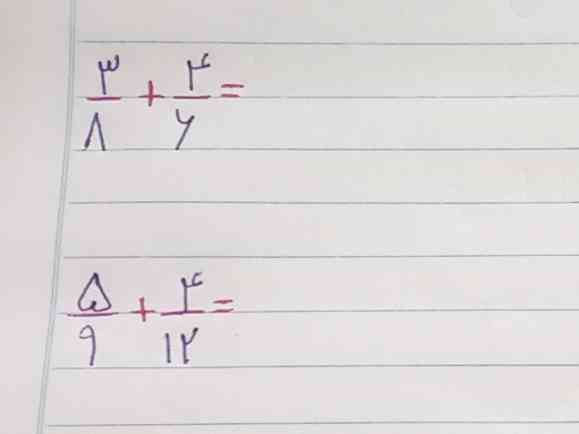 ۳/۸ + ۴/۶ =
۵/۹ + ۴/۱۲ =